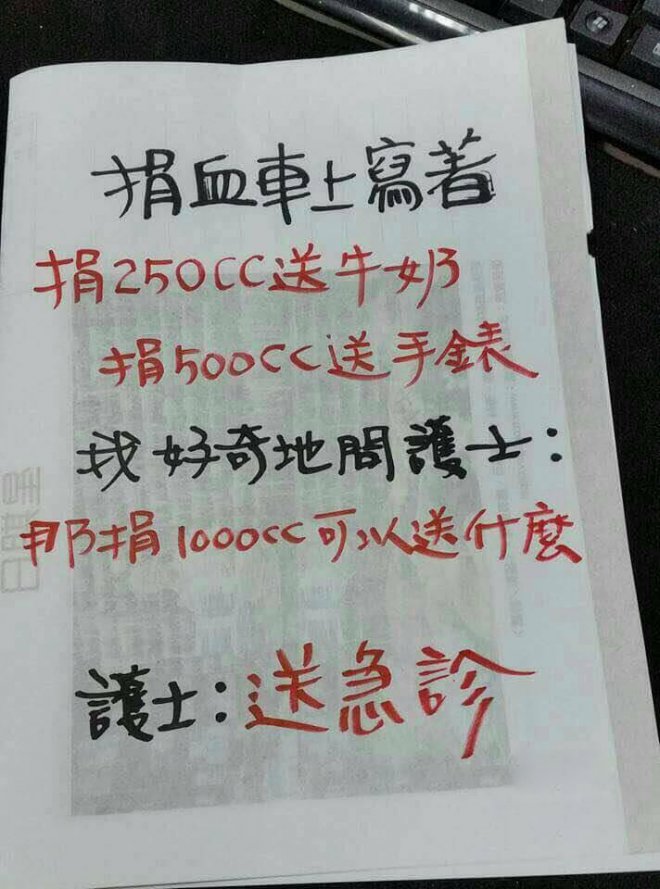 捐血車上寫著
捐250CC送牛奶
捐500CC送手錶
我好奇地問護士：
那捐1000cc可以送什麼
護士：送急診